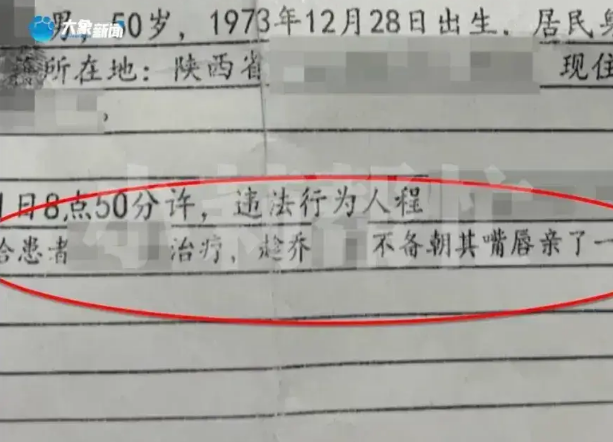 大象新闻
男，50岁，1973年12月28日出生，居民身
籍所在地：陕西省 现住
，
1日8点50分许，违法行为人程
给患者 治疗，趁乔 不备朝其嘴唇亲了一
小莉帮忙